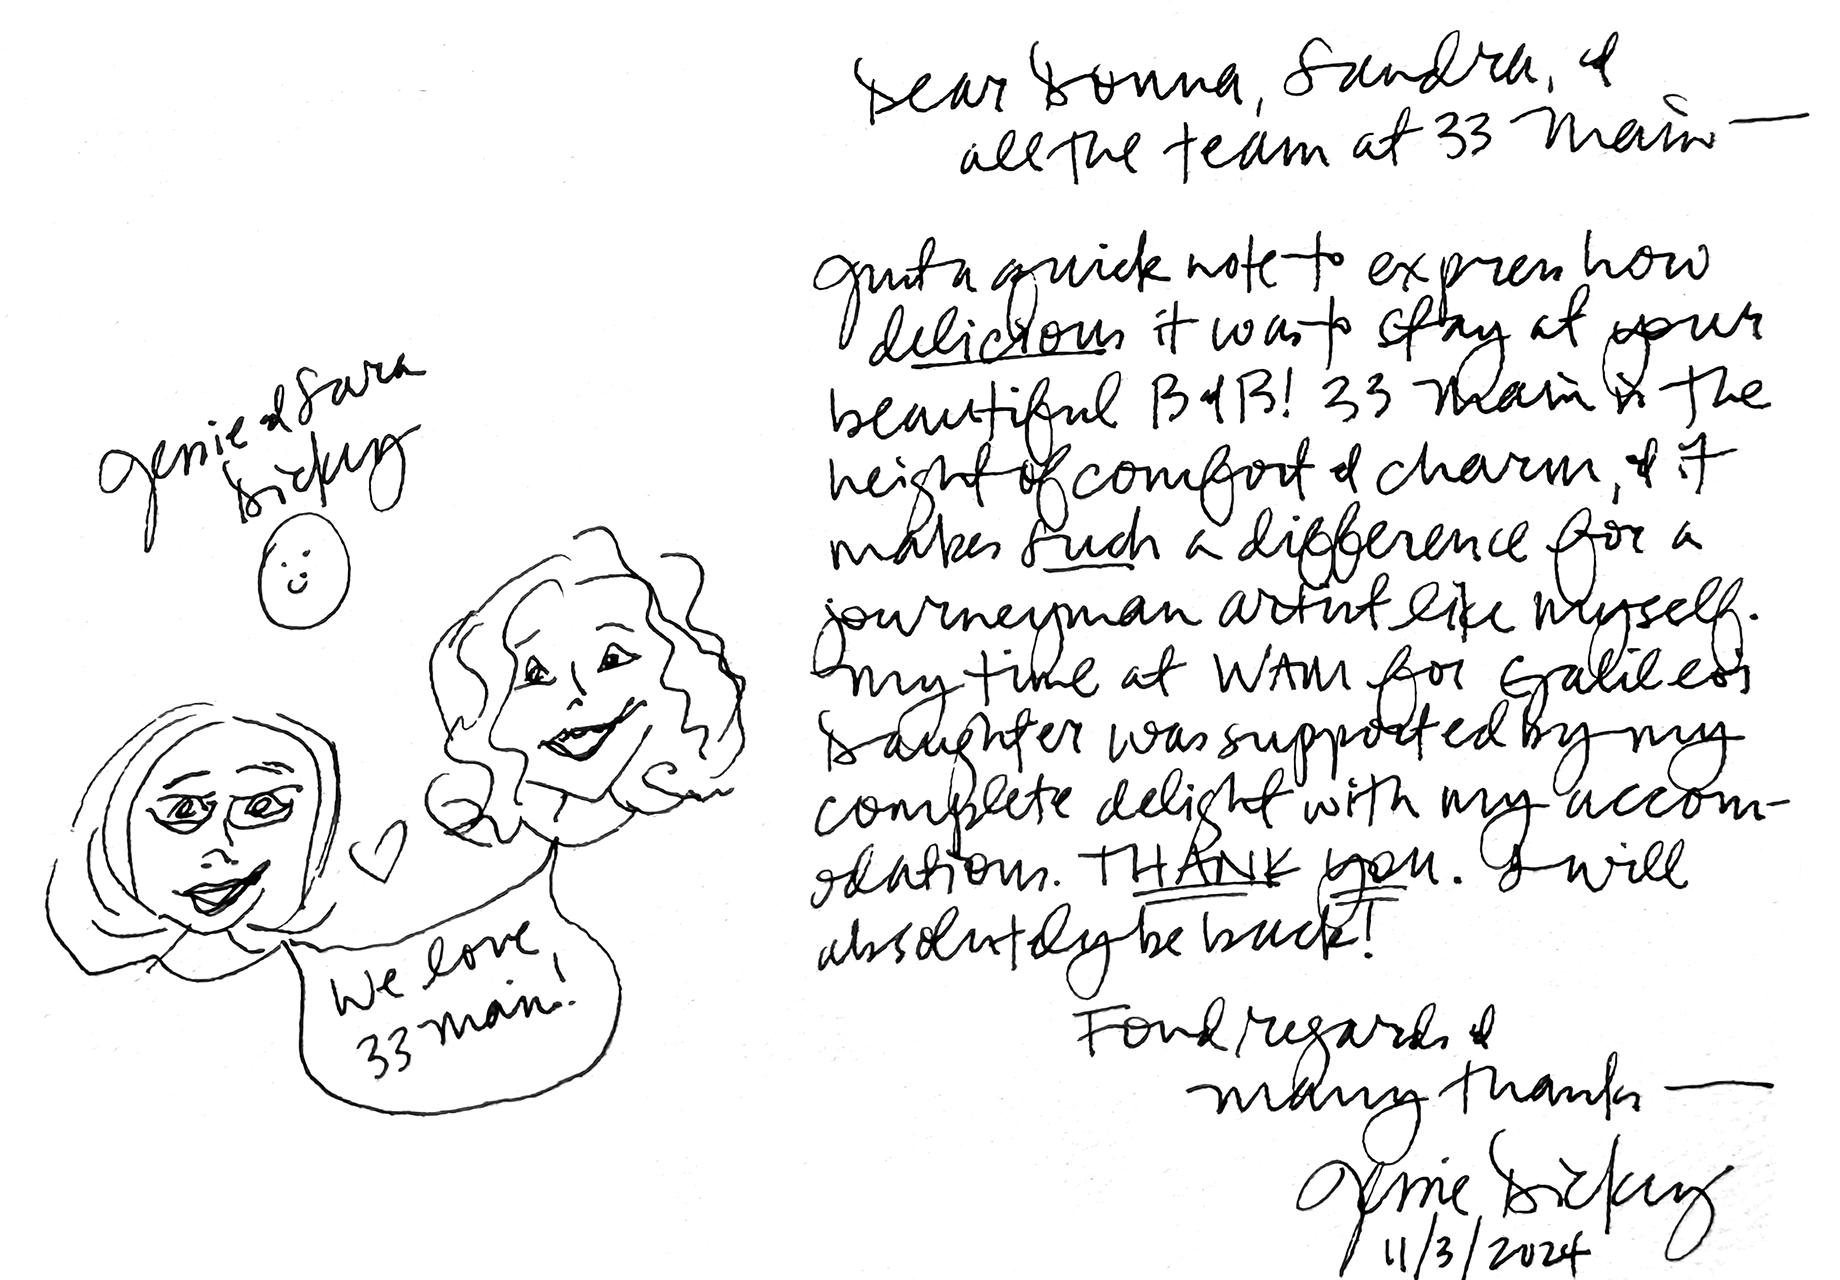 Jessie & Sara
Dickey
We love
33 Main!
Dear Donna, Sandra, &
all the team at 33 Main —
Just a quick note to express how
delicious it was to stay at your
beautiful B&B! 33 Main is the
height of comfort & charm, & it
makes such a difference for a
journeyman artist like myself.
My time at WAM for Galileo's
Daughter was supported by my
complete delight with my accom-
odations. THANK YOU. I will
absolutely be back!
Fond regards &
many thanks —
Jessie Dickey
11/3/2024